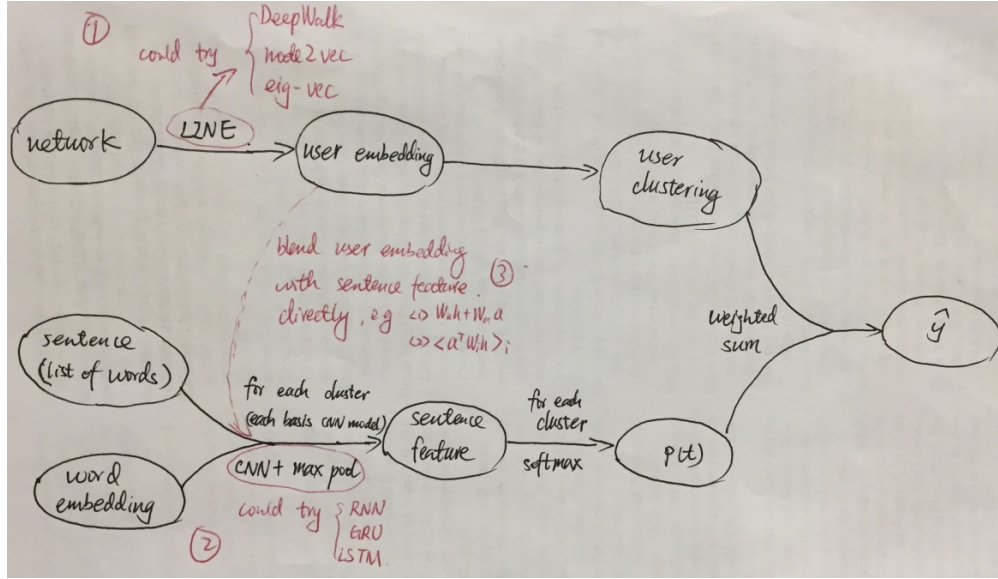 ①
could try
DeepWalk
node2vec
eig-vec
network
LINE
user embedding
user
clustering
blend user embedding
with sentence feature.
directly, eg
③
weighted
sum
ŷ
sentence
(list of words)
for each cluster
(each basis CNN model)
CNN + max pool
word
embedding
sentence
feature
for each
cluster
softmax
p(t)
②
could try
RNN
GRU
LSTM